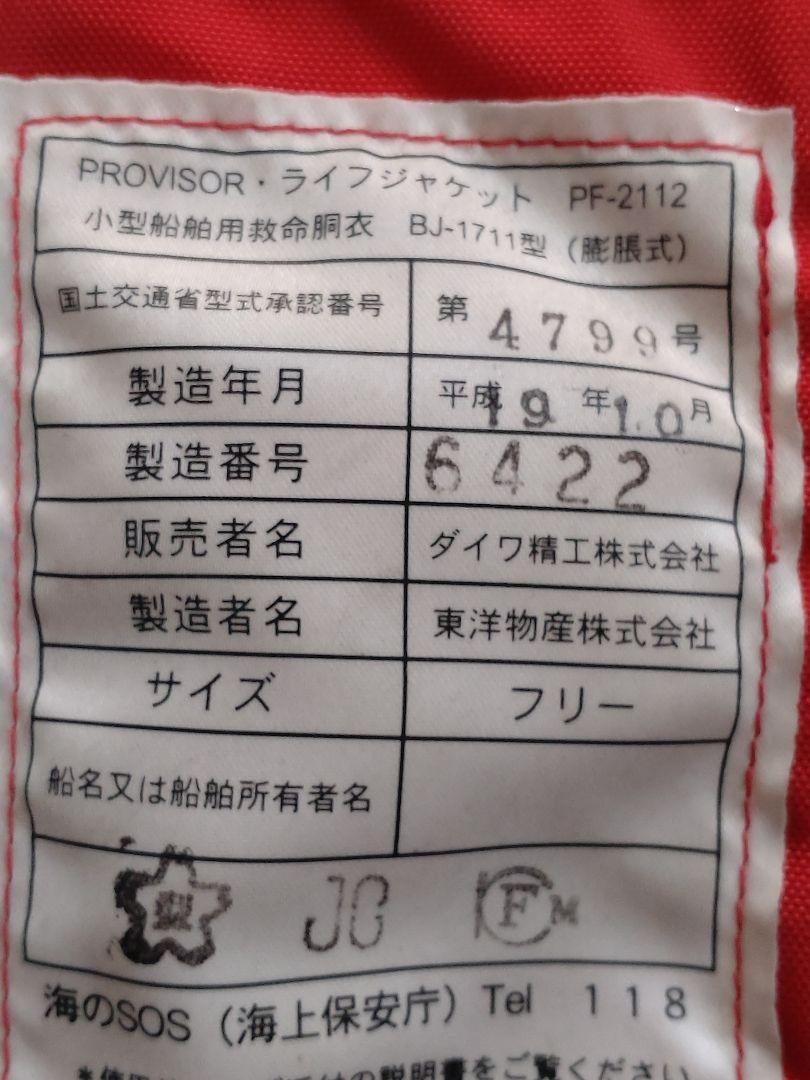 PROVISOR・ライフジャケット PF-2112
小型船舶用救命胴衣 BJ-1711型（膨脹式）
国土交通省型式承認番号 第4799号
製造年月 平成19年10月
製造番号 6422
販売者名 ダイワ精工株式会社
製造者名 東洋物産株式会社
サイズ フリー
船名又は船舶所有者名
製 JG F M
海のSOS（海上保安庁）Tel 118
の説明書をご覧ください